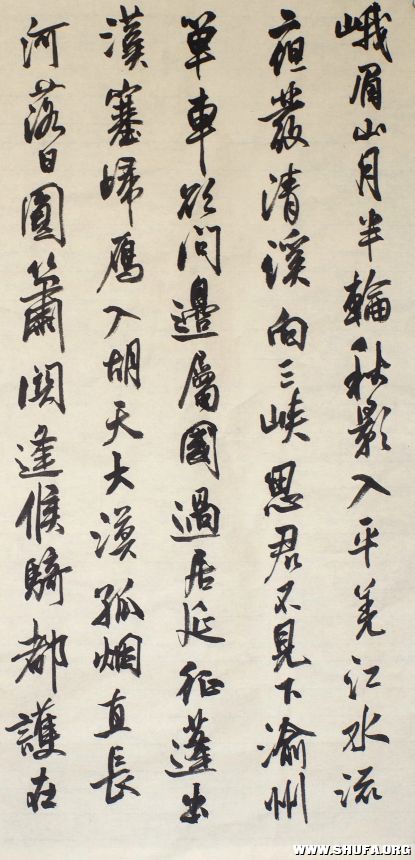 峨眉山月半輪秋影入平羌江水流
夜發清溪向三峡思君不見下渝州
單車欲問邊屬國過居延征蓬出
漢塞歸雁入胡天大漠孤烟直長
河落日圓蕭関逢候騎都護在
WWW.SHUFA.ORG